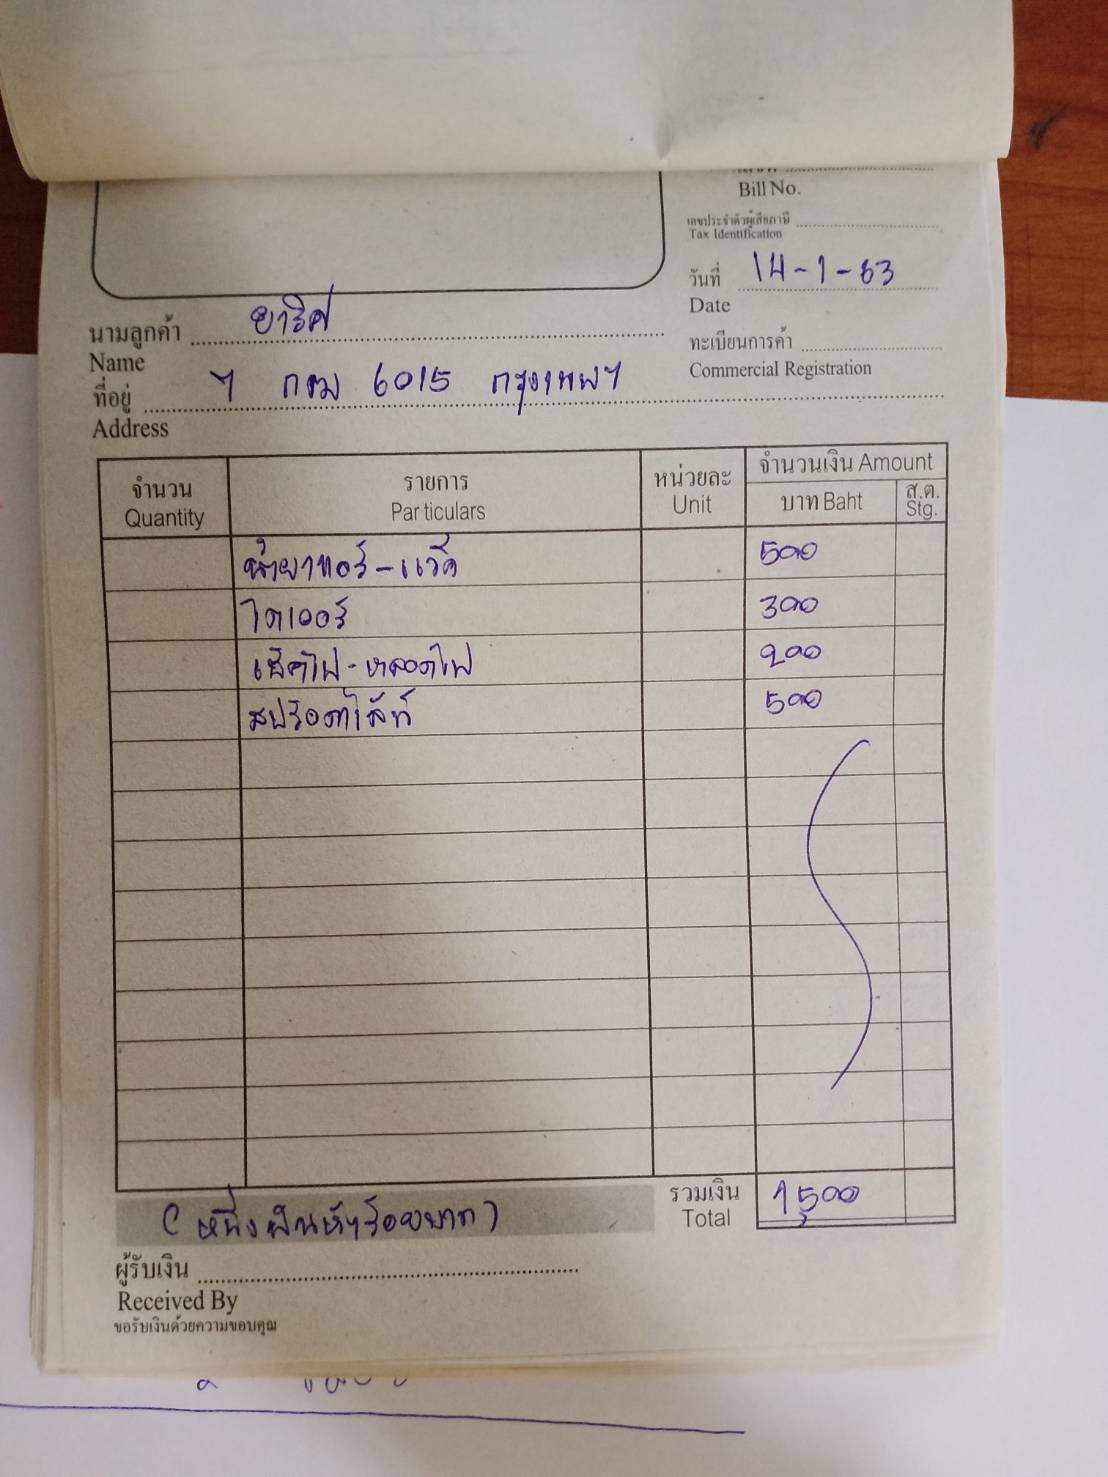 Bill No.
เลขประจำตัวผู้เสียภาษี
Tax Identification
วันที่ 14-1-63
Date
นามลูกค้า ยาริศ
Name
ทะเบียนการค้า
Commercial Registration
ที่อยู่ 7 กณ 6015 กรุงเทพฯ
Address
จำนวน รายการ หน่วยละ จำนวนเงิน Amount
Quantity Particulars Unit บาท Baht ส.ต. Stg.
น้ำยาแอร์-แว๊ค 500
ไดเออร์ 300
เช็คไฟ-หลอดไฟ 200
สปริอตไล้ท์ 500
(หนึ่งพันห้าร้อยบาท) รวมเงิน 1500
Total
ผู้รับเงิน
Received By
ขอรับเงินด้วยความขอบคุณ